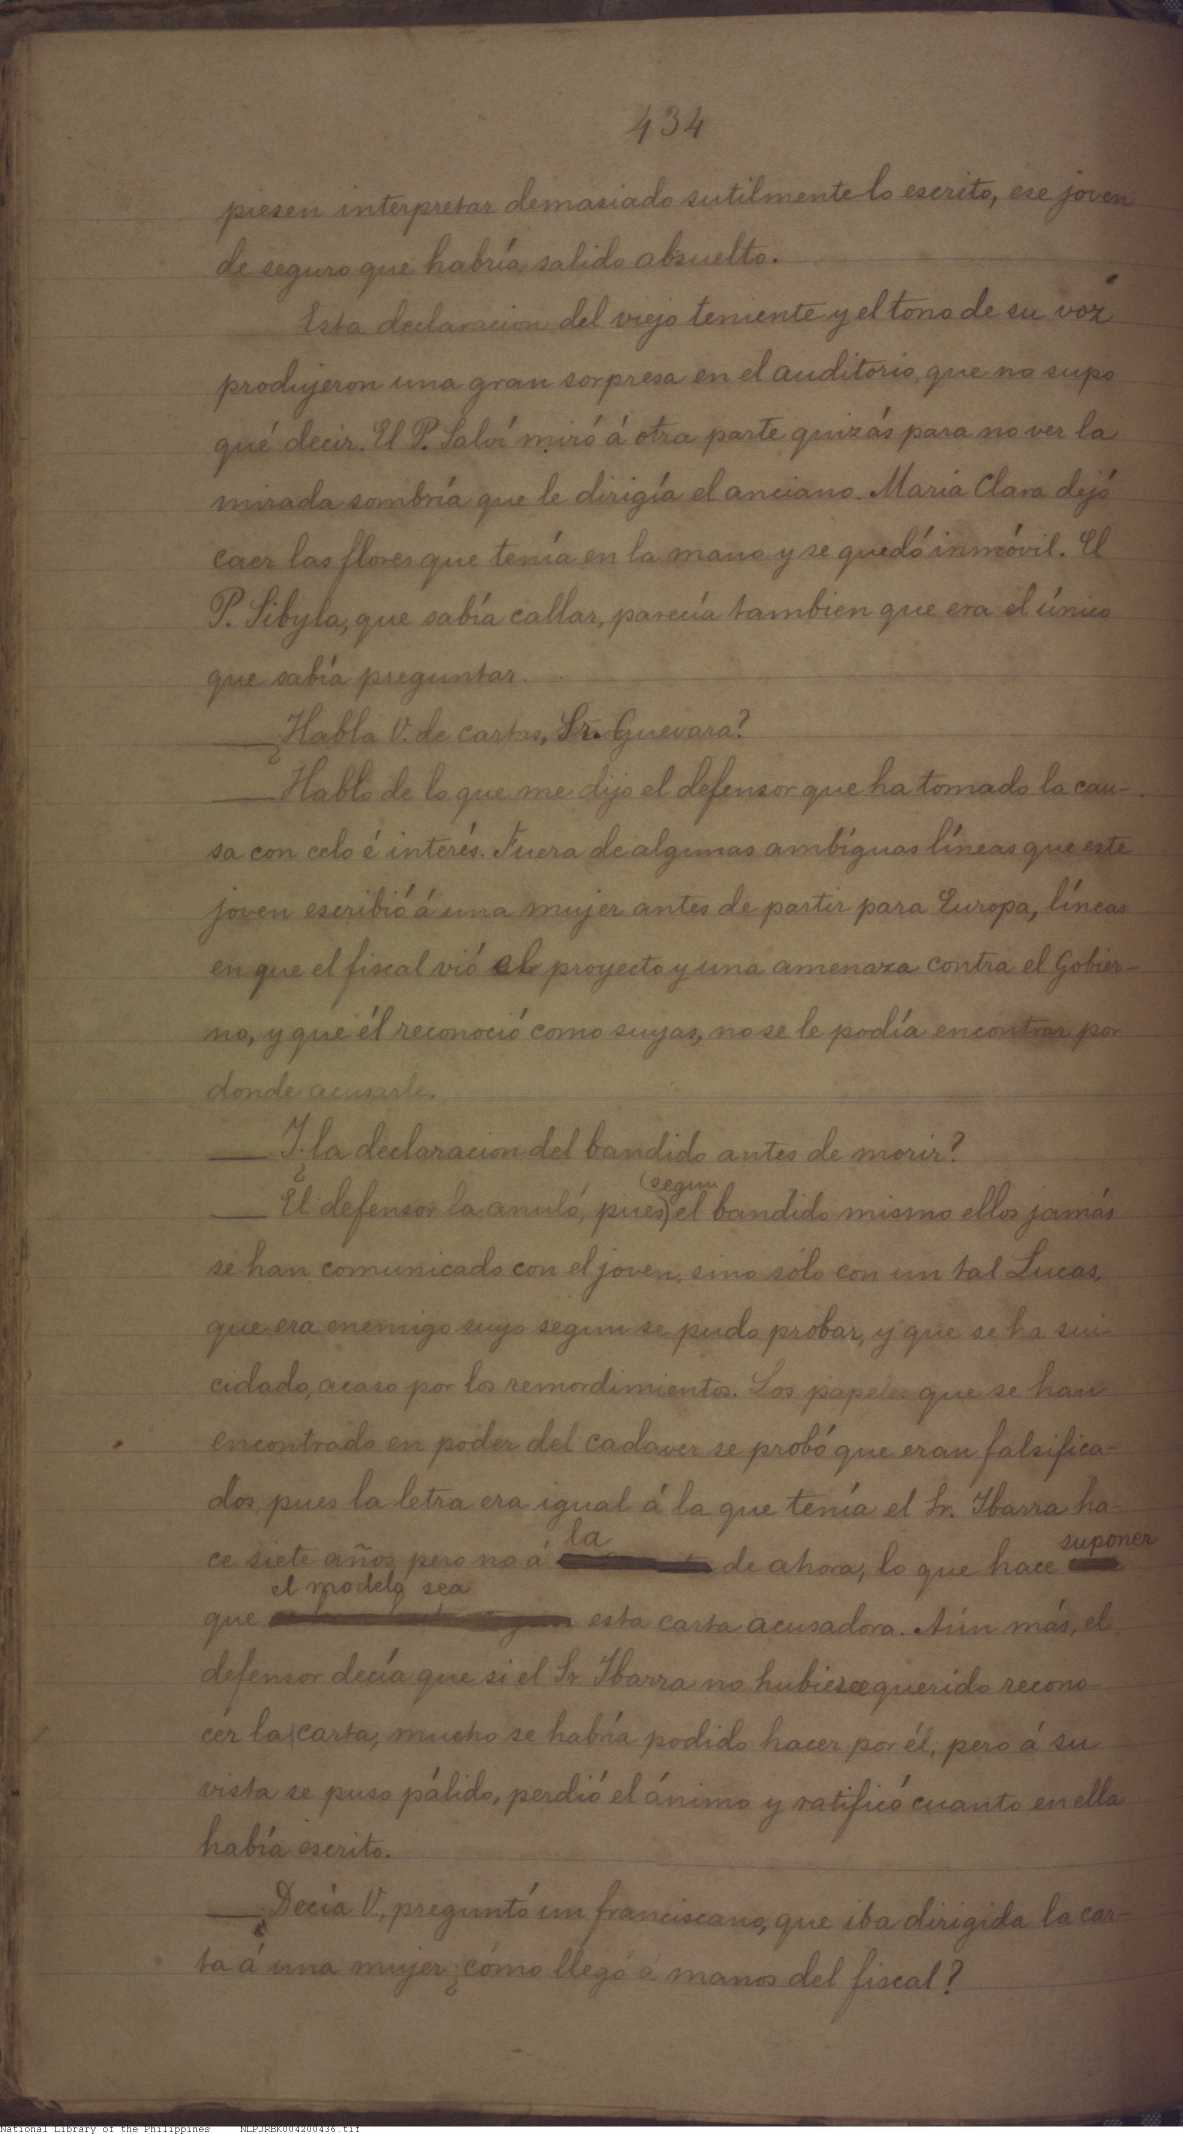 434
piesen interpretar demasiado sutilmente lo escrito, ese joven
de seguro que habría salido absuelto.
Esta declaracion del viejo teniente y el tono de su voz
produjeron una gran sorpresa en el auditorio, que no supo
qué decir. El P. Salví miró á otra parte quizás para no ver la
mirada sombría que le dirigía el anciano. Maria Clara dejó
caer las flores que tenía en la mano y se quedó inmóvil. El
P. Sibyla, que sabía callar, parecía tambien que era el único
que sabía preguntar.
—¿Habla V. de cartas, Sr. Guevara?
—Hablo de lo que me dijo el defensor que ha tomado la cau-
sa con celo é interés. Fuera de algunas ambíguas líneas que este
joven escribió á una mujer antes de partir para Europa, líneas
en que el fiscal vió el proyecto y una amenaza contra el Gobier-
no, y que él reconoció como suyas, no se le podía encontrar por
donde acusarle.
—¿Y la declaracion del bandido antes de morir?
(segun
—El defensor la anuló, pues) el bandido mismo ellos jamás
se han comunicado con el joven, sino sólo con un tal Lucas,
que era enemigo suyo segun se pudo probar, y que se ha sui-
cidado, acaso por los remordimientos. Los papeles que se han
encontrado en poder del cadaver se probó que eran falsifica-
dos, pues la letra era igual á la que tenía el Sr. Ibarra ha-
la suponer
ce siete años, pero no á de ahora, lo que hace
el modelo sea
que esta carta acusadora. Aún más, el
defensor decía que si el Sr. Ibarra no hubiese querido recono-
cer la carta, mucho se habría podido hacer por él, pero á su
vista se puso pálido, perdió el ánimo y ratificó cuanto en ella
había escrito.
—¿Decía V., preguntó un franciscano, que iba dirigida la car-
ta á una mujer; ¿cómo llegó á manos del fiscal?
National Library of the Philippines NLPJRBK004200436.tif